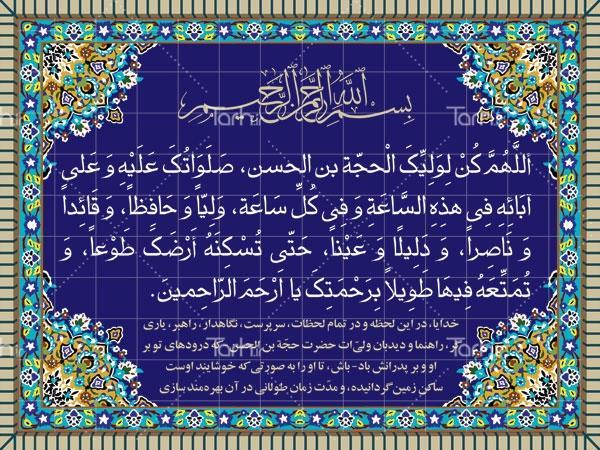 بسم الله الرحمن الرحیم
اَللّهُمَّ کُنْ لِوَلِیِّکَ الْحجّة بن الحسن، صَلَواتُکَ عَلَیْهِ وَ عَلی
آبائِهِ فی هذِهِ السّاعَةِ وَ فی کُلِّ ساعَة، وَلِیّاً وَ حافِظاً، وَ قائِداً
وَ ناصراً، وَ دَلیلًا وَ عَیْناً، حَتّی تُسْکِنَهُ اَرْضَکَ طَوْعاً، وَ
تُمَتِّعَهُ فیها طَویلاً برَحْمَتِکَ یا اَرْحَمَ الرّاحِمین.
خدایا، در این لحظه و در تمام لحظات، سرپرست، نگاهدار، راهبر، یاری
گر، راهنما و دیدبان ولیّ ات حضرت حجّة بن الحسن که درودهای تو بر
او و بر پدرانش باد- باش، تا او را به صورتی که خوشایند اوست
ساکن زمین گردانیده، و مدت زمان طولانی در آن بهره مند سازی
Tarhi.ir